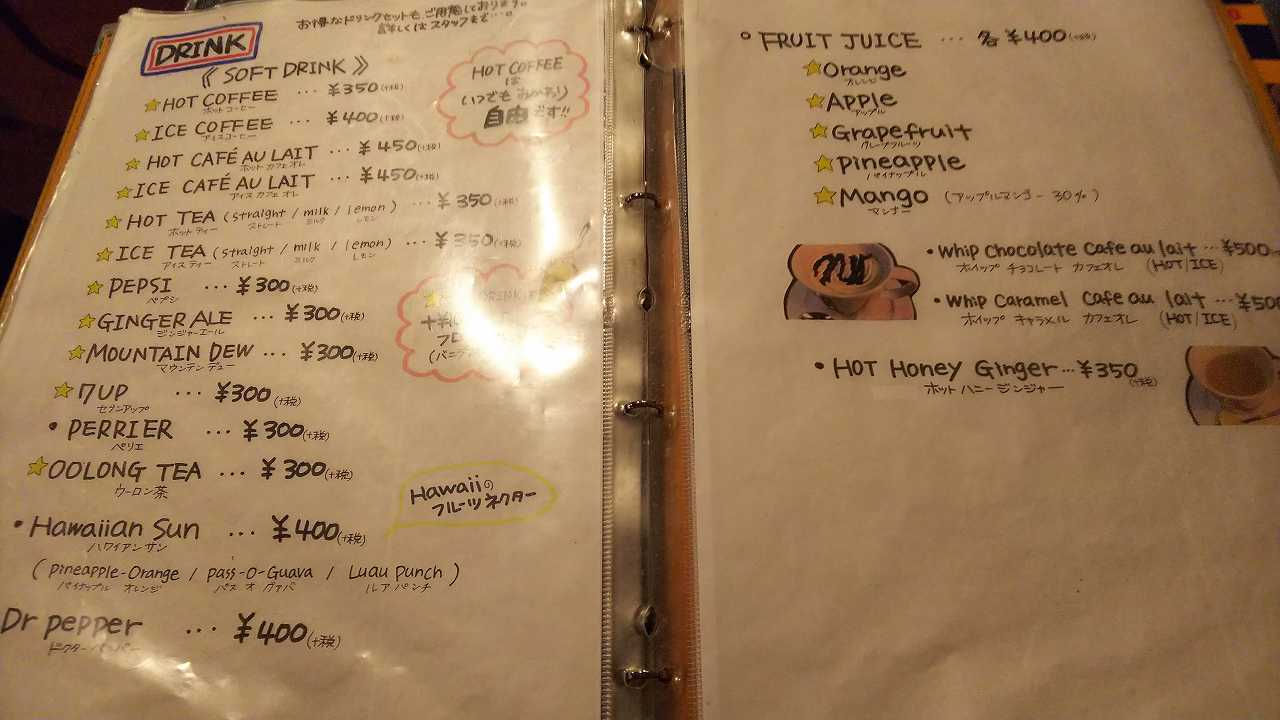 お得なドリンクセットもご用意しております。
詳しくはスタッフまで…。
DRINK
《 SOFT DRINK 》
HOT COFFEE
は
いつでも おかわり
自由です!!
☆HOT COFFEE ... ¥350(+税)
ホットコーヒー
☆ICE COFFEE ... ¥400(+税)
アイスコーヒー
☆HOT CAFÉ AU LAIT ... ¥450(+税)
ホットカフェオレ
☆ICE CAFÉ AU LAIT ... ¥450(+税)
アイスカフェオレ
☆HOT TEA (straight / milk / lemon) ... ¥350(+税)
ホットティー ストレート ミルク レモン
☆ICE TEA (straight / milk / lemon) ... ¥350(+税)
アイスティー ストレート ミルク レモン
☆PEPSI ... ¥300(+税)
ペプシ
☆GINGER ALE ... ¥300(+税)
ジンジャーエール
☆MOUNTAIN DEW ... ¥300(+税)
マウンテンデュー
☆7UP ... ¥300(+税)
セブンアップ
•PERRIER ... ¥300(+税)
ペリエ
☆OOLONG TEA ... ¥300(+税)
ウーロン茶
Hawaiiの
フルーツネクター
•Hawaiian Sun ... ¥400(+税)
ハワイアンサン
(pineapple-Orange / pass-O-Guava / Luau punch)
パイナップル オレンジ パス オ グァバ ルア パンチ
Dr pepper ... ¥400(+税)
ドクターペッパー
○FRUIT JUICE ... 各¥400(+税)
☆Orange
オレンジ
☆Apple
アップル
☆Grapefruit
グレープフルーツ
☆Pineapple
パイナップル
☆Mango (アップルマンゴー 30%)
マンゴー
•Whip Chocolate Cafe au lait ... ¥500
ホイップ チョコレート カフェオレ (HOT/ICE)
•Whip Caramel Cafe au lait ... ¥500
ホイップ キャラメル カフェオレ (HOT/ICE)
•HOT Honey Ginger ... ¥350(+税)
ホット ハニー ジンジャー